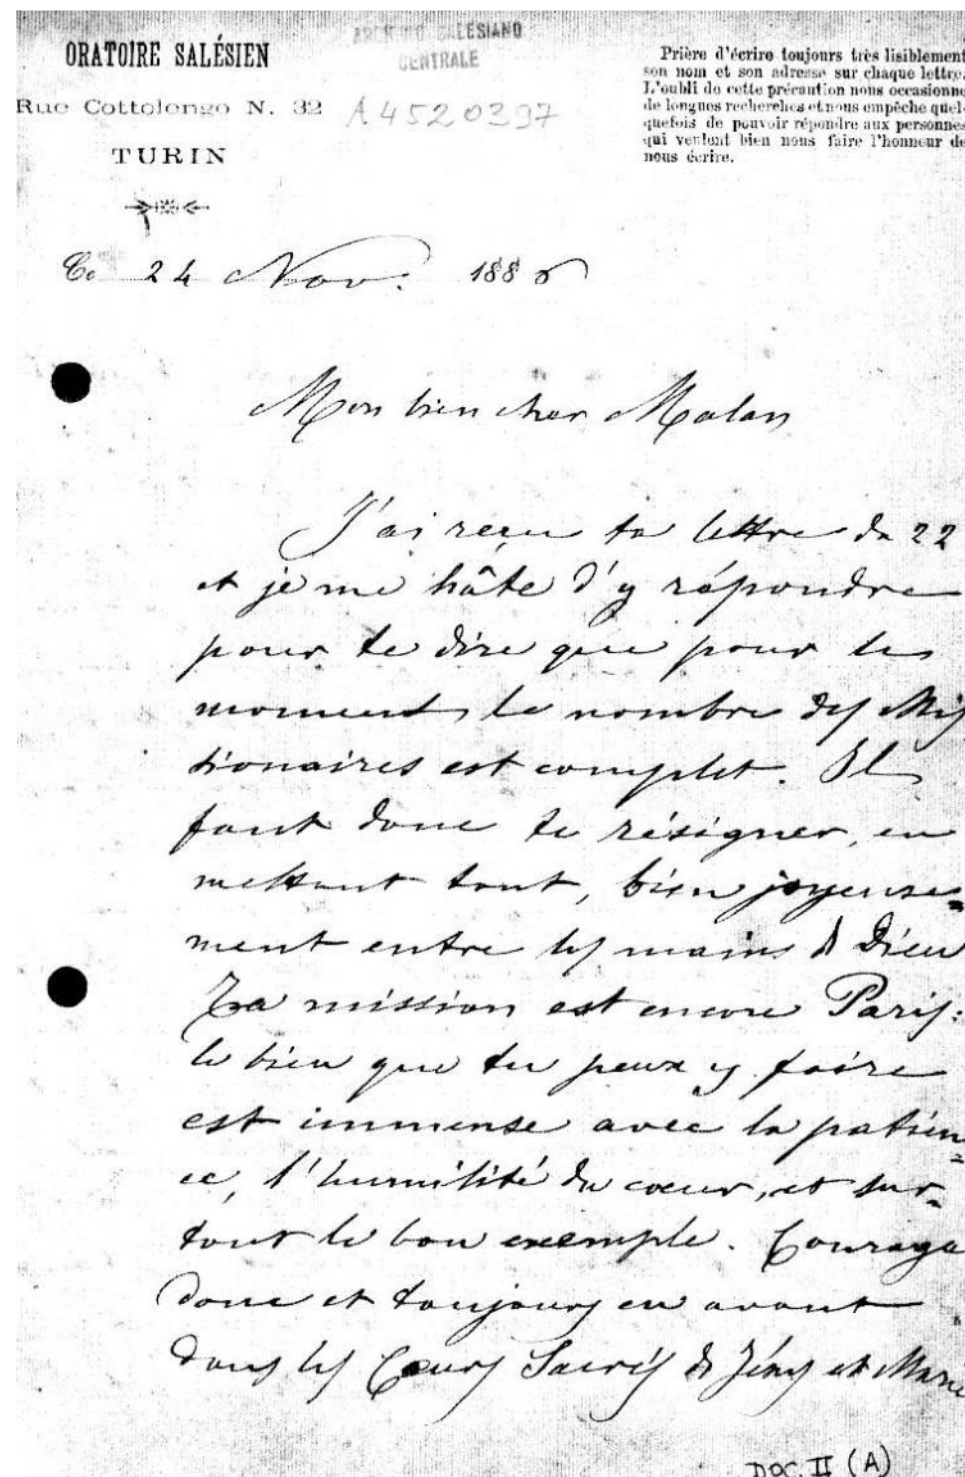 ORATOIRE SALÉSIEN
Rue Cottolengo N. 32
TURIN
ARCHIVIO SALESIANO
CENTRALE
A4520397
Prière d'écrire toujours très lisiblement
son nom et son adresse sur chaque lettre.
L'oubli de cette précaution nous occasionne
de longues recherches et nous empêche quel-
quefois de pouvoir répondre aux personnes
qui veulent bien nous faire l'honneur de
nous écrire.
Ce 24 Nov. 1886
Mon bien cher Malan
J'ai reçu ta lettre du 22
et je me hâte d'y répondre
pour te dire que pour le
moment le nombre des Mis
sionaires est complet. Il
faut donc te résigner, en
mettant tout, bien joyeuse=
ment entre les mains de Dieu
Ta mission est encore Paris:
le bien que tu peux y faire
est immense avec la patien=
ce, l'humilité du cœur, et sur=
tout le bon exemple. Courage
donc et toujours en avant
dans les Cœurs Sacrés de Jésus et Marie
DOC. II (A)